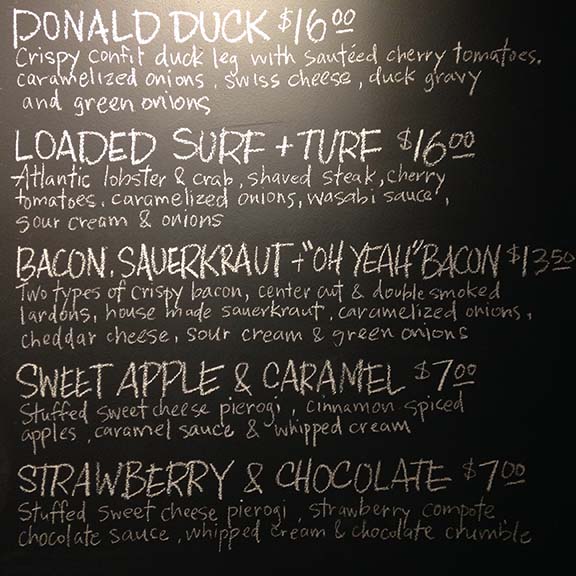 DONALD DUCK $16.00
Crispy confit duck leg with sautéed cherry tomatoes.
caramelized onions, swiss cheese, duck gravy
and green onions
LOADED SURF + TURF $16.00
Atlantic lobster & crab, shaved steak, cherry
tomatoes. caramelized onions, wasabi sauce,
sour cream & onions
BACON, SAUERKRAUT + "OH YEAH" BACON $13.50
Two types of crispy bacon, center cut & double smoked
lardons, house made sauerkraut, caramelized onions,
cheddar cheese, sour cream & green onions
SWEET APPLE & CARAMEL $7.00
Stuffed sweet cheese pierogi, cinnamon spiced
apples, caramel sauce & whipped cream
STRAWBERRY & CHOCOLATE $7.00
Stuffed sweet cheese pierogi, strawberry compote
chocolate sauce, whipped cream & chocolate crumble